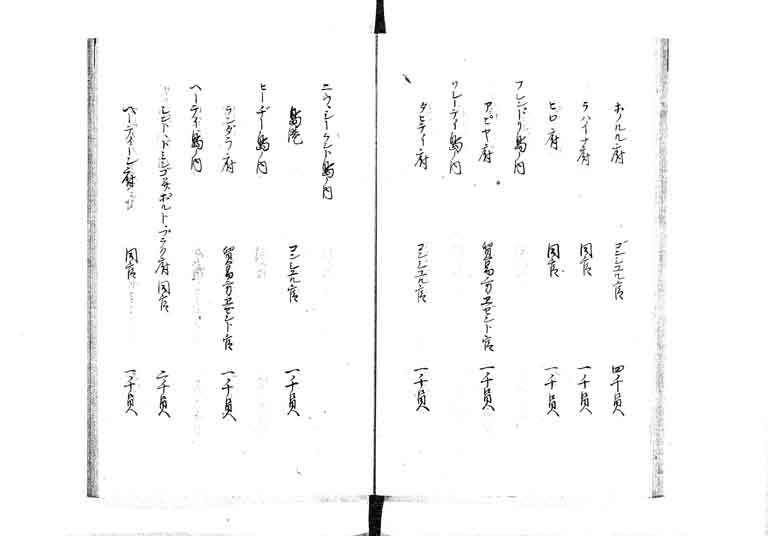 ホノルル府 コンシユル官 四千員
ラハイナ府 同官 一千員
ヒロ府 同官 一千員
フレンドリ島ノ内
アピヤ府 貿易方エゼント官 一千員
ソレーティ島ノ内
タヒティ府 コンシユル官 一千員
ニウシーランド島ノ内
島港 コンシユル官 一千員
ヒーヂー島ノ内
ランダラ府 貿易方エゼント官 一千員
ヘーティ島ノ内
シント・ドミンゴ 府 同官 二千員
府 同官 一千員